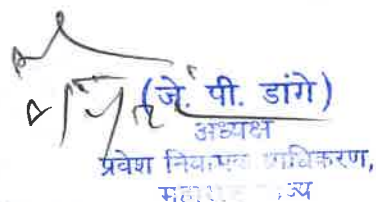 (जे. पी. डांगे)
अध्यक्ष
प्रवेश नियामक प्राधिकरण,
महाराष्ट्र राज्य